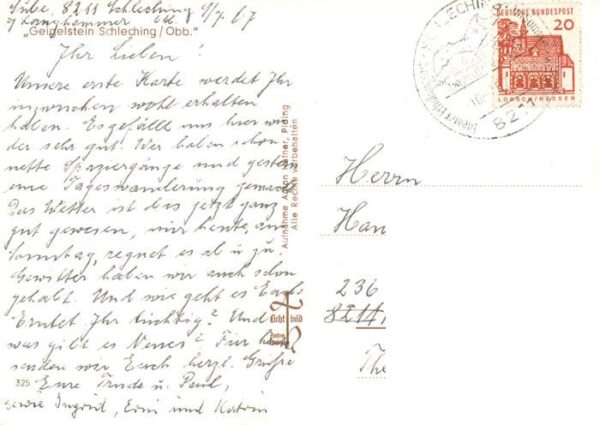 8211 Schleching 9/7. 67
"Geigelstein Schleching / Obb."
Ihr Lieben!
Unsere erste Karte werdet Ihr
inzwischen wohl erhalten
haben. Es gefällt uns hier wie-
der sehr gut. Wir haben schon
nette Spaziergänge und gestern
eine Tageswanderung gemacht
Das Wetter ist bis jetzt ganz
gut gewesen, nur heute, am
Sonntag, regnet es ab u zu.
Gewitter haben wir auch schon
gehabt. Und wie geht es Euch
Erntet Ihr tüchtig? Und
was gibt es Neues? Für heute
senden wir Euch herzl. Grüße
325 Eure Trude u. Paul,
sowie Ingrid, Erni und Katrin
Alle Rechte vorbehalten
Lichtbild
DEUTSCHE BUNDESPOST
20
LORSCH/HESSEN
Herrn
Han
236
8211,
The